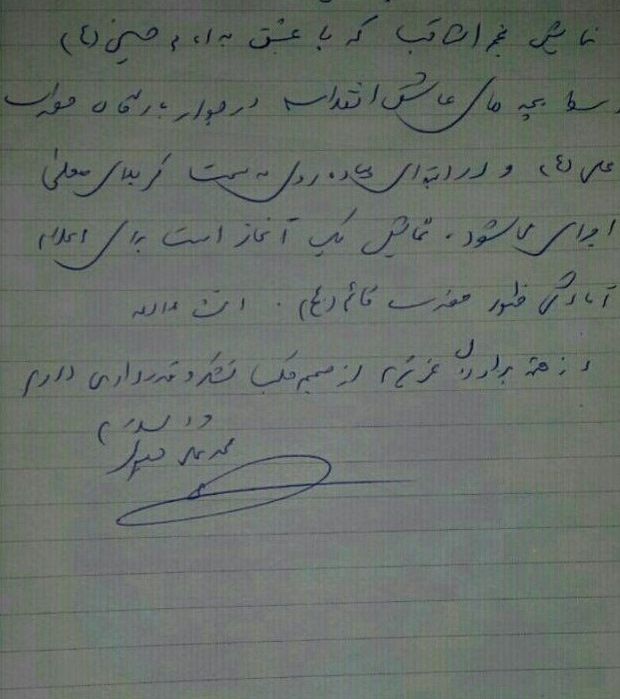 نمایش نجم الثاقب که با عشق به امام حسین (ع)
توسط بچه های عاشق انقلاب در جوار بارگاه حضرت
علی (ع) و در ابتدای جاده روی به سمت کربلای معلی
اجرا می شود، نمایش یک آغاز است برای اعلام
آمادگی ظهور حضرت قائم (ع). انشاءالله
و از همه برادران عزیزم از صمیم قلب تشکر و قدردانی دارم
والسلام
محمد علی